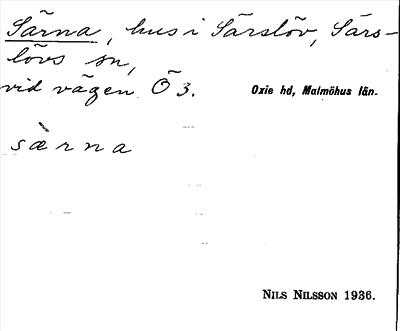 Särna, hus i Särslöv, Särs-
lövs sn,
vid vägen Ö 3.
Oxie hd, Malmöhus län.
sæ̀rna
NILS NILSSON 1936.